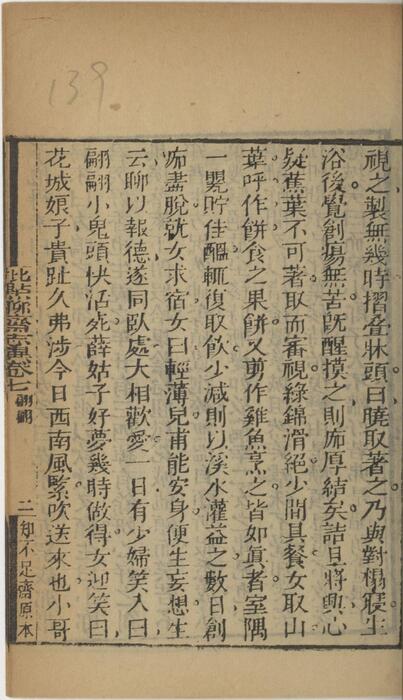 139
視之製無幾時摺疊牀頭曰曉取著之乃與對榻寢生
浴後覺創瘍無苦旣醒摸之則痂厚結矣詰旦將興心
疑蕉葉不可著取而審視綠錦滑絕少閒具餐女取山
葉呼作餅食之果餅又剪作雞魚烹之皆如眞者室隅
一罌貯佳醞輒復取飮少減則以溪水灌益之數日創
痂盡脫就女求宿女曰輕薄兒甫能安身便生妄想生
云聊以報德遂同臥處大相歡愛一日有少婦笑入曰
翩翩小鬼頭快活死薛姑子好夢幾時做得女迎笑曰
花城娘子貴趾久弗涉今日西南風緊吹送來也小哥
聊齋志異卷七 翩翩 二 知不足齋原本